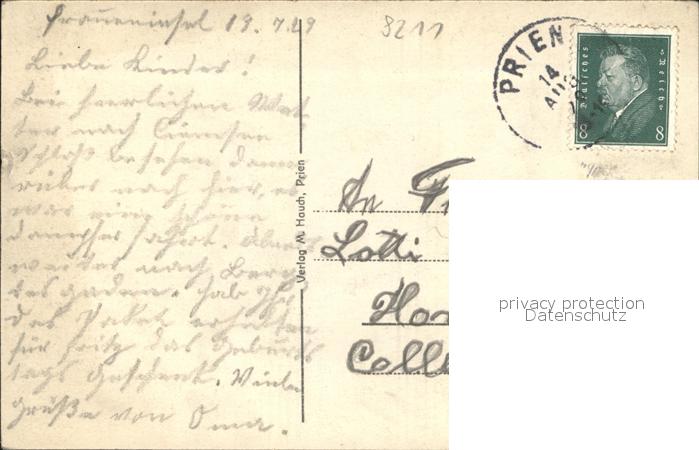 Fraueninsel 19.7.29
Liebe Kinder!
Bei herrlichen Wet-
ter nach Ciemsee
Schloß besehen dann
rüber nach hier, es
war eine schöne
Dampferfahrt. Abends
weiter nach Berch
tesgaden. Hab Ihr
das Paket erhalten
für Fritz das Geburts
tags Geschenk. Viele
Grüße von Oma.
8211
PRIEN
14
Deutsches Reich
8 8
Verlag M. Hauch, Prien
An
Lotti
privacy protection
Datenschutz